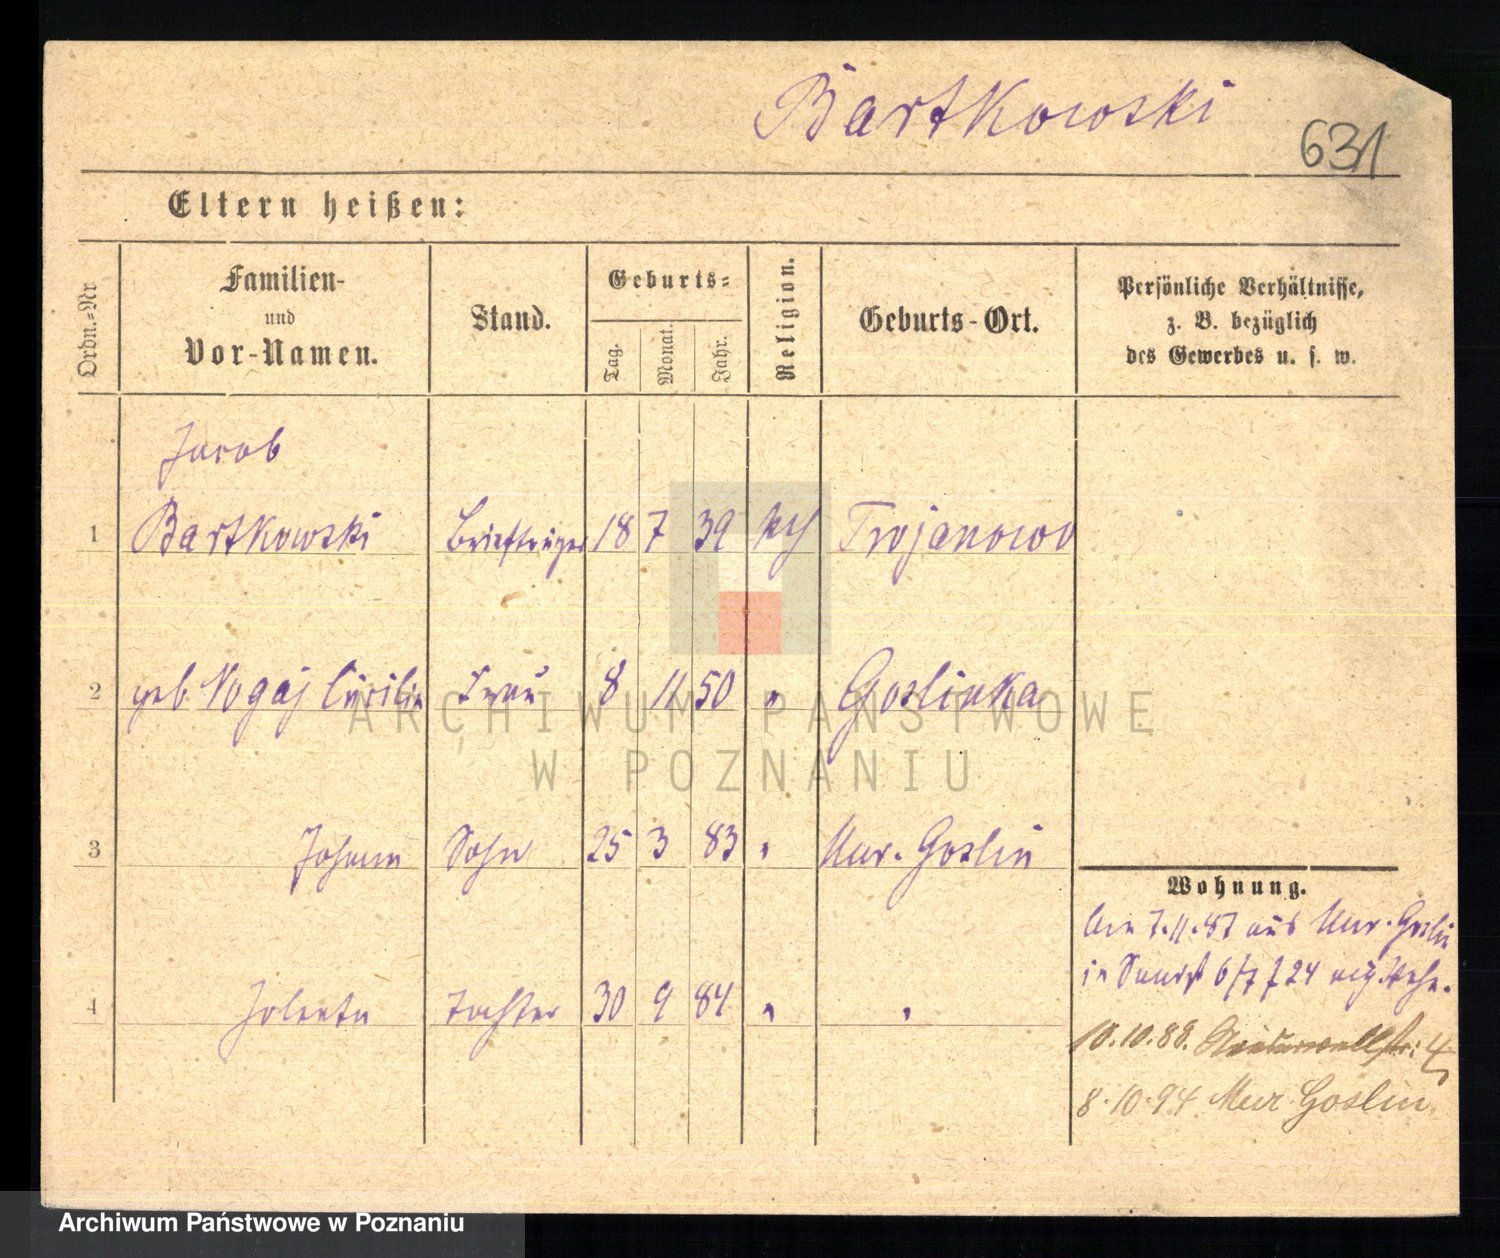 Bartkowski
631
Eltern heißen:
Ordn.=Nr
Familien-
und
Vor-Namen.
Stand.
Geburts=
Tag.
Monat.
Jahr.
Religion.
Geburts-Ort.
Persönliche Verhältnisse,
z. B. bezüglich
des Gewerbes u. s. w.
Jacob
1 Bartkowski Briefträger 18 7 39 kth Trojanowo
2 geb. Nogaj Cäcilie Frau 8 11 50 " Goslinka
3 Johann Sohn 25 3 83 " Mur. Goslin
4 Jolenta Tochter 30 9 84 " "
Wohnung.
Am 7.11.87 aus Mur. Goslin
in 6/7 24
10.10.88. Niederwallstr: 4
8.10.94 Mur Goslin.
ARCHIWUM PAŃSTWOWE
W POZNANIU
Archiwum Państwowe w Poznaniu